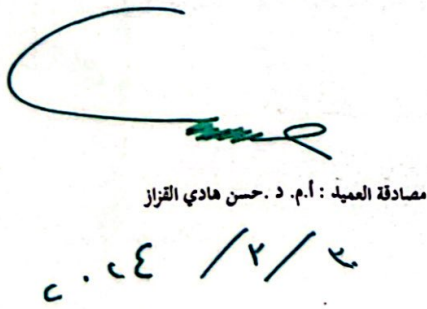 مصادقة العميد : أ.م. د .حسن هادي القزاز
٢٠٢٤